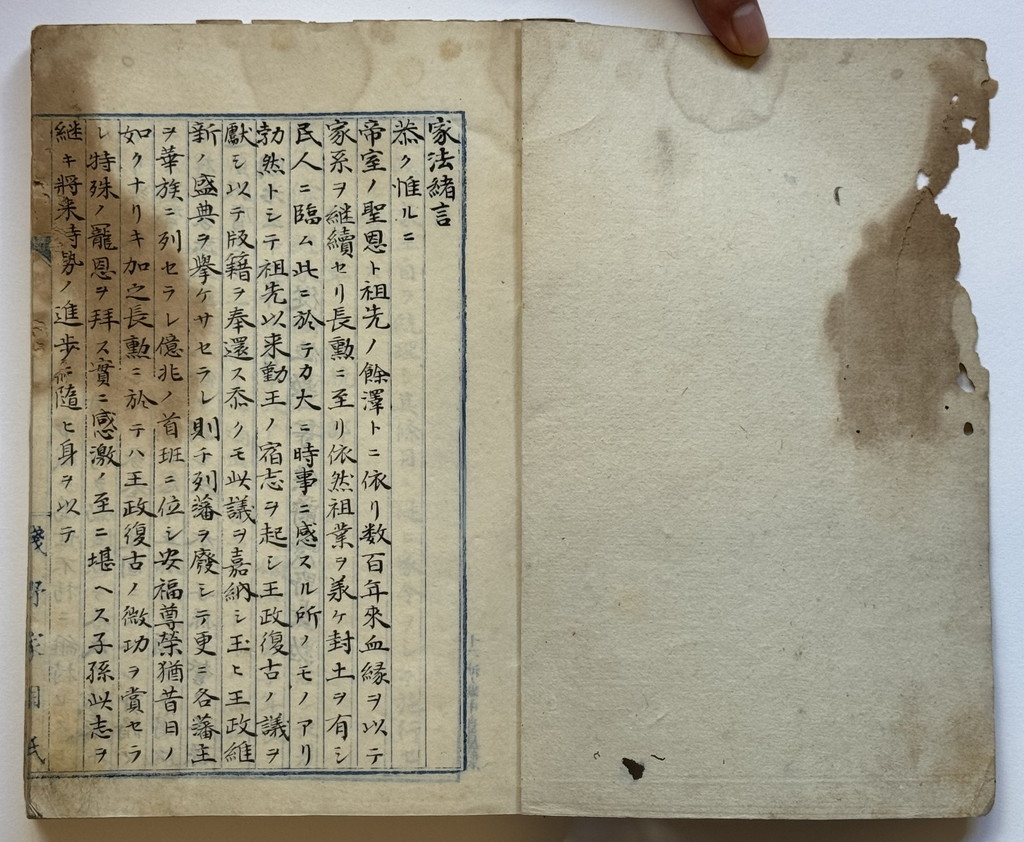 家法緒言
恭ク惟ルニ
帝室ノ聖恩ト祖先ノ餘澤トニ依リ数百年來血縁ヲ以テ
家系ヲ継續セリ長勲ニ至リ依然祖業ヲ承ケ封土ヲ有シ
民人ニ臨ム此ニ於テカ大ニ時事ニ感スル所ノモノアリ
勃然トシテ祖先以来勤王ノ宿志ヲ起シ王政復古ノ議ヲ
獻シ以テ版籍ヲ奉還ス忝クモ此議ヲ嘉納シ玉ヒ王政維
新ノ盛典ヲ擧ケサセラレ則チ列藩ヲ廢シテ更ニ各藩主
ヲ華族ニ列セラレ億兆ノ首班ニ位シ安福尊榮猶昔日ノ
如クナリキ加之長勲ニ於テハ王政復古ノ微功ヲ賞セラ
レ特殊ノ寵恩ヲ拜ス實ニ感激ノ至ニ堪ヘス子孫此志ヲ
継キ將来時勢ノ進歩ニ隨ヒ身ヲ以テ
野家